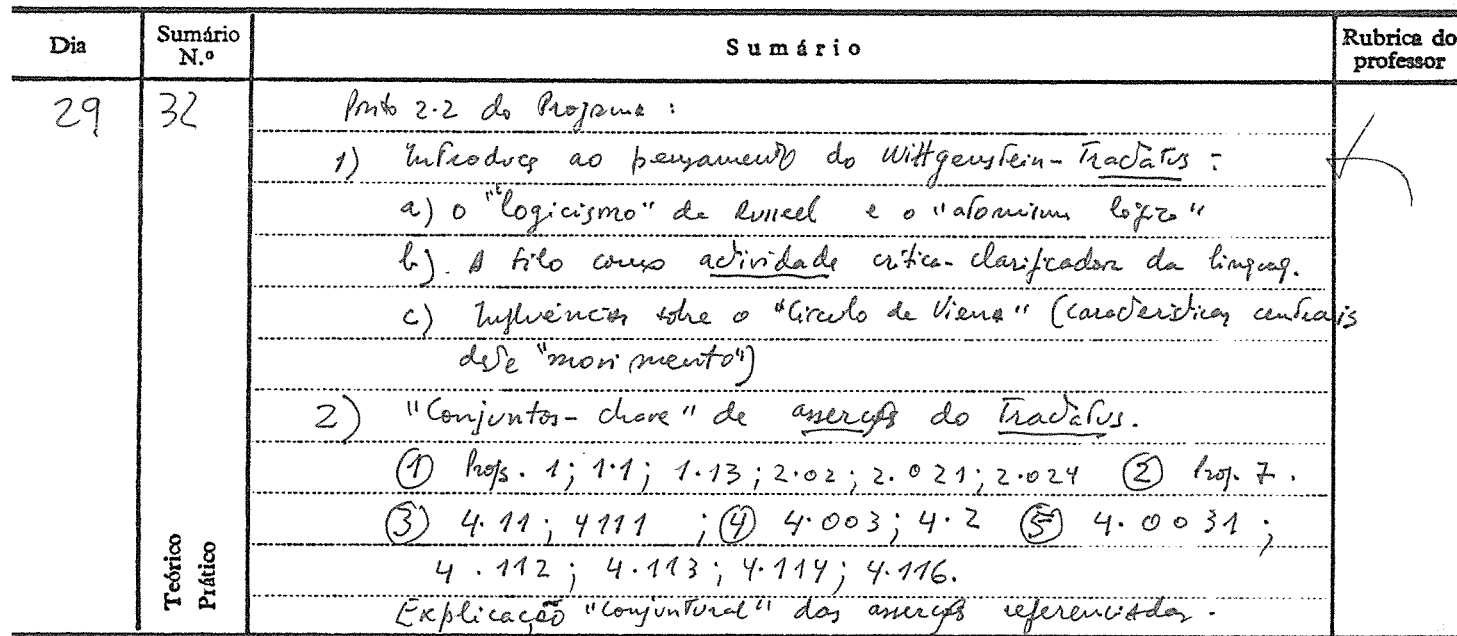 Dia Sumário N.º Sumário Rubrica do professor
29 32 Ponto 2.2 do Programa :
1) Introduçã ao pensamento do Wittgenstein - Tractatus :
a) o "logicismo" de Russel e o "atomismo lógico"
b). A filo como actividade crítica-clarificadora da linguag.
c) Influências sobre o "Círculo de Viena" (características centrais
deste "movimento")
2) "Conjuntos-chave" de asserções do Tractatus.
① Props. 1; 1.1; 1.13; 2.02; 2.021; 2.024 ② Prop. 7.
③ 4.11; 4111 ; ④ 4.003; 4.2 ⑤ 4.0031 ;
4.112; 4.113; 4.114; 4.116.
Explicação "conjuntural" das asserções referenciadas.
Teórico
Prático